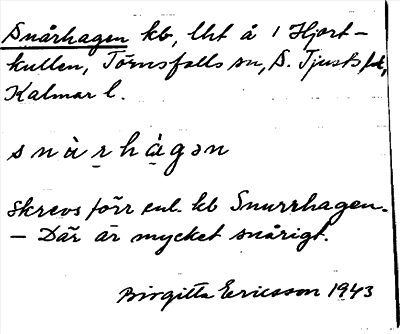 Snårhagen kb, lht å 1 Hjort-
kullen, Törnsfalls sn, S. Tjusts hd,
Kalmar l.
snàr̥hàgən
Skrevs förr enl. kb Snurrhagen.
– Där är mycket snårigt.
Birgitta Ericsson 1943